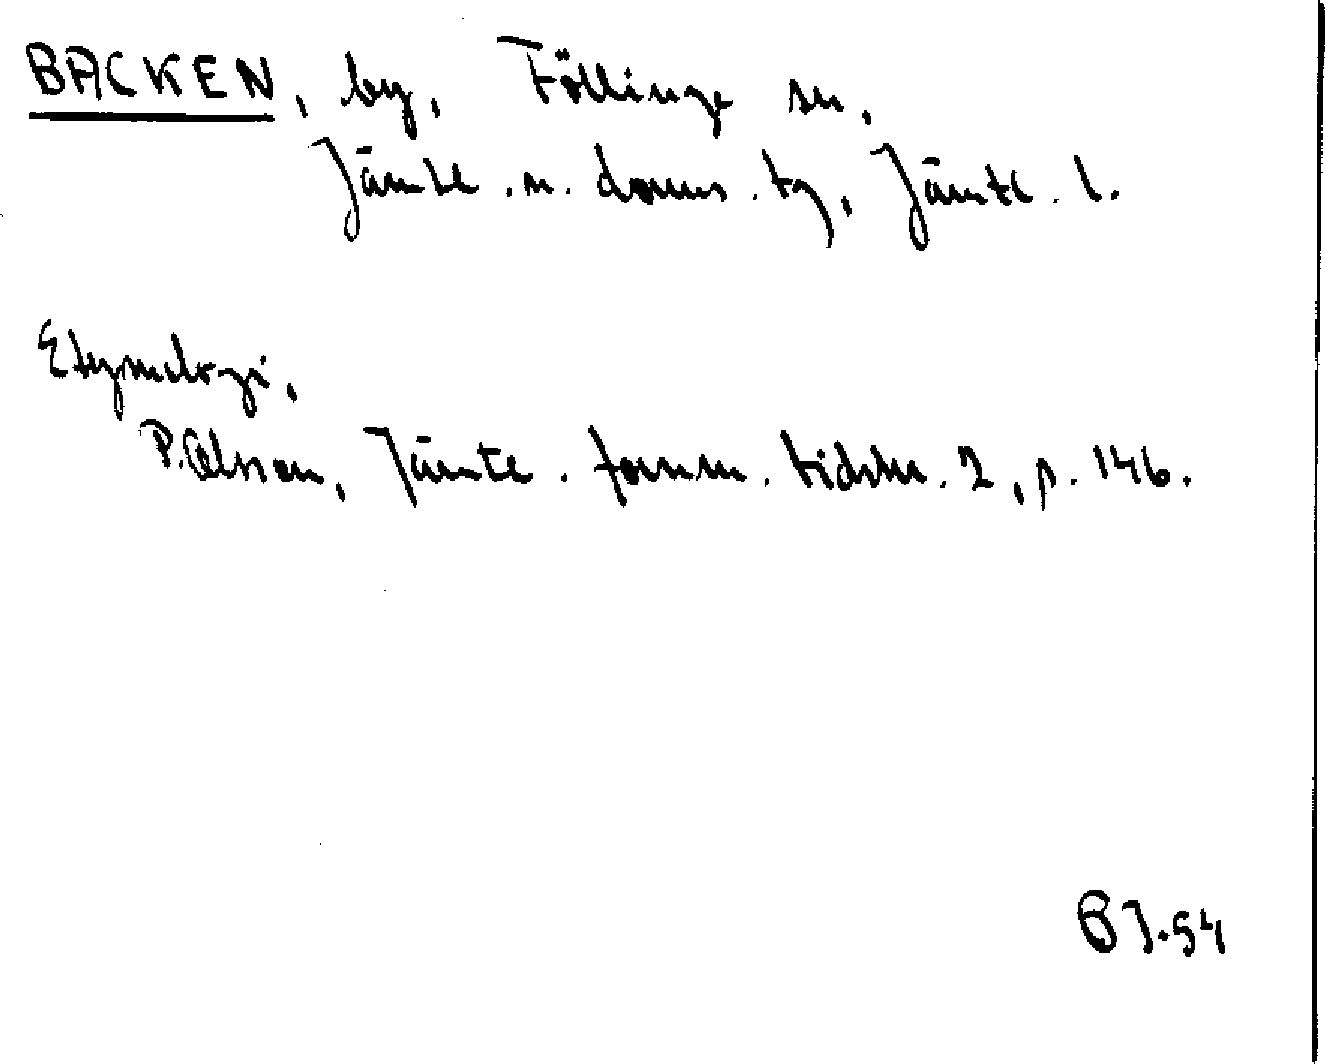 BACKEN, by, Föllinge sn,
Jämtl. n. doms. tg, Jämtl. l.
Etymologi,
P. Olsson, Jämtl. fornm. tidskr. 2, p. 146.
BJ.54